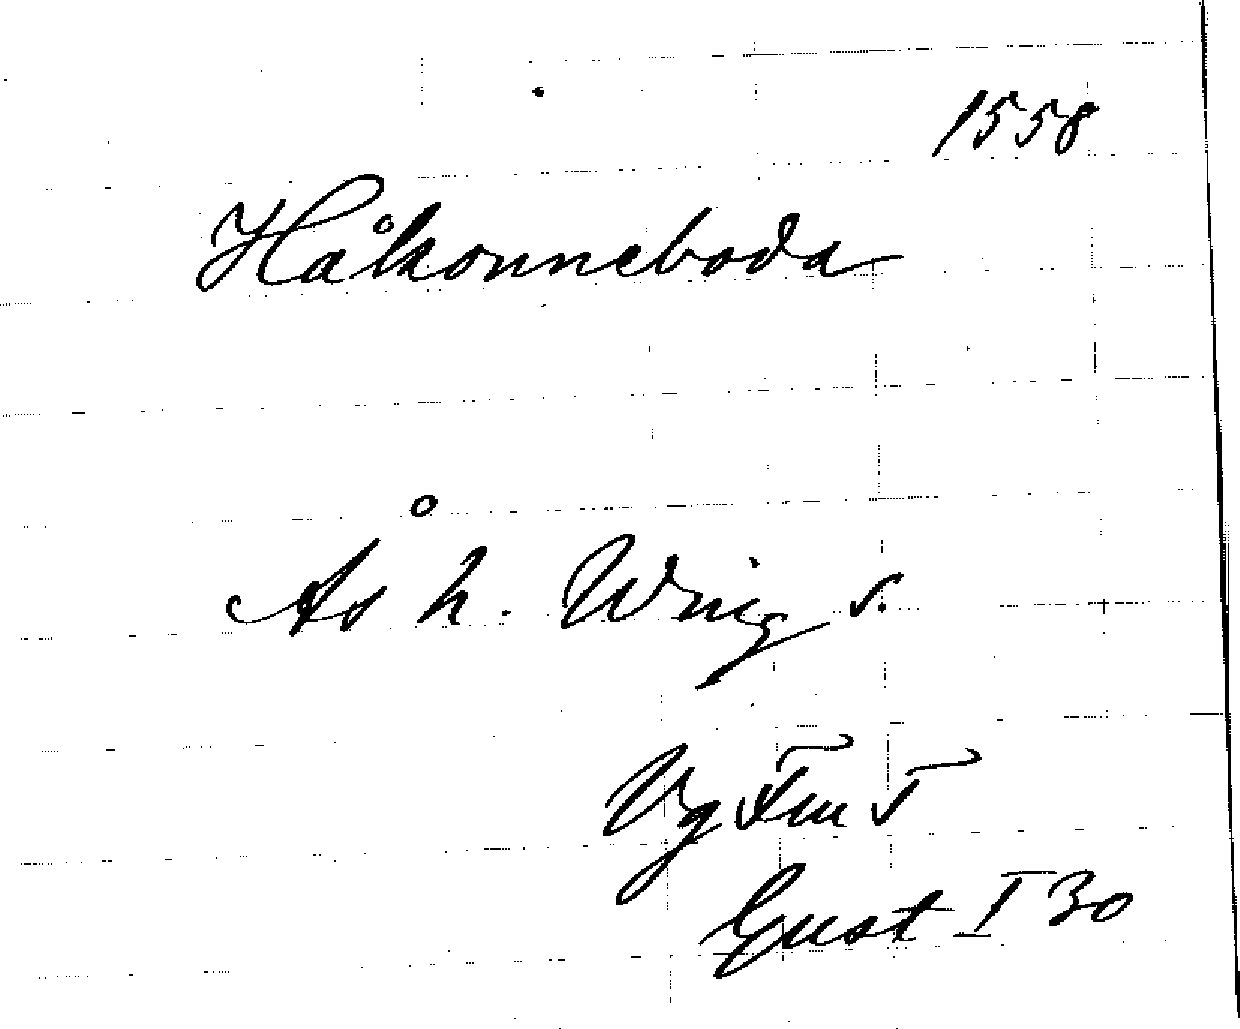 1558
Håkonneboda
Ås h. Wing s.
Vg
Gust I 30